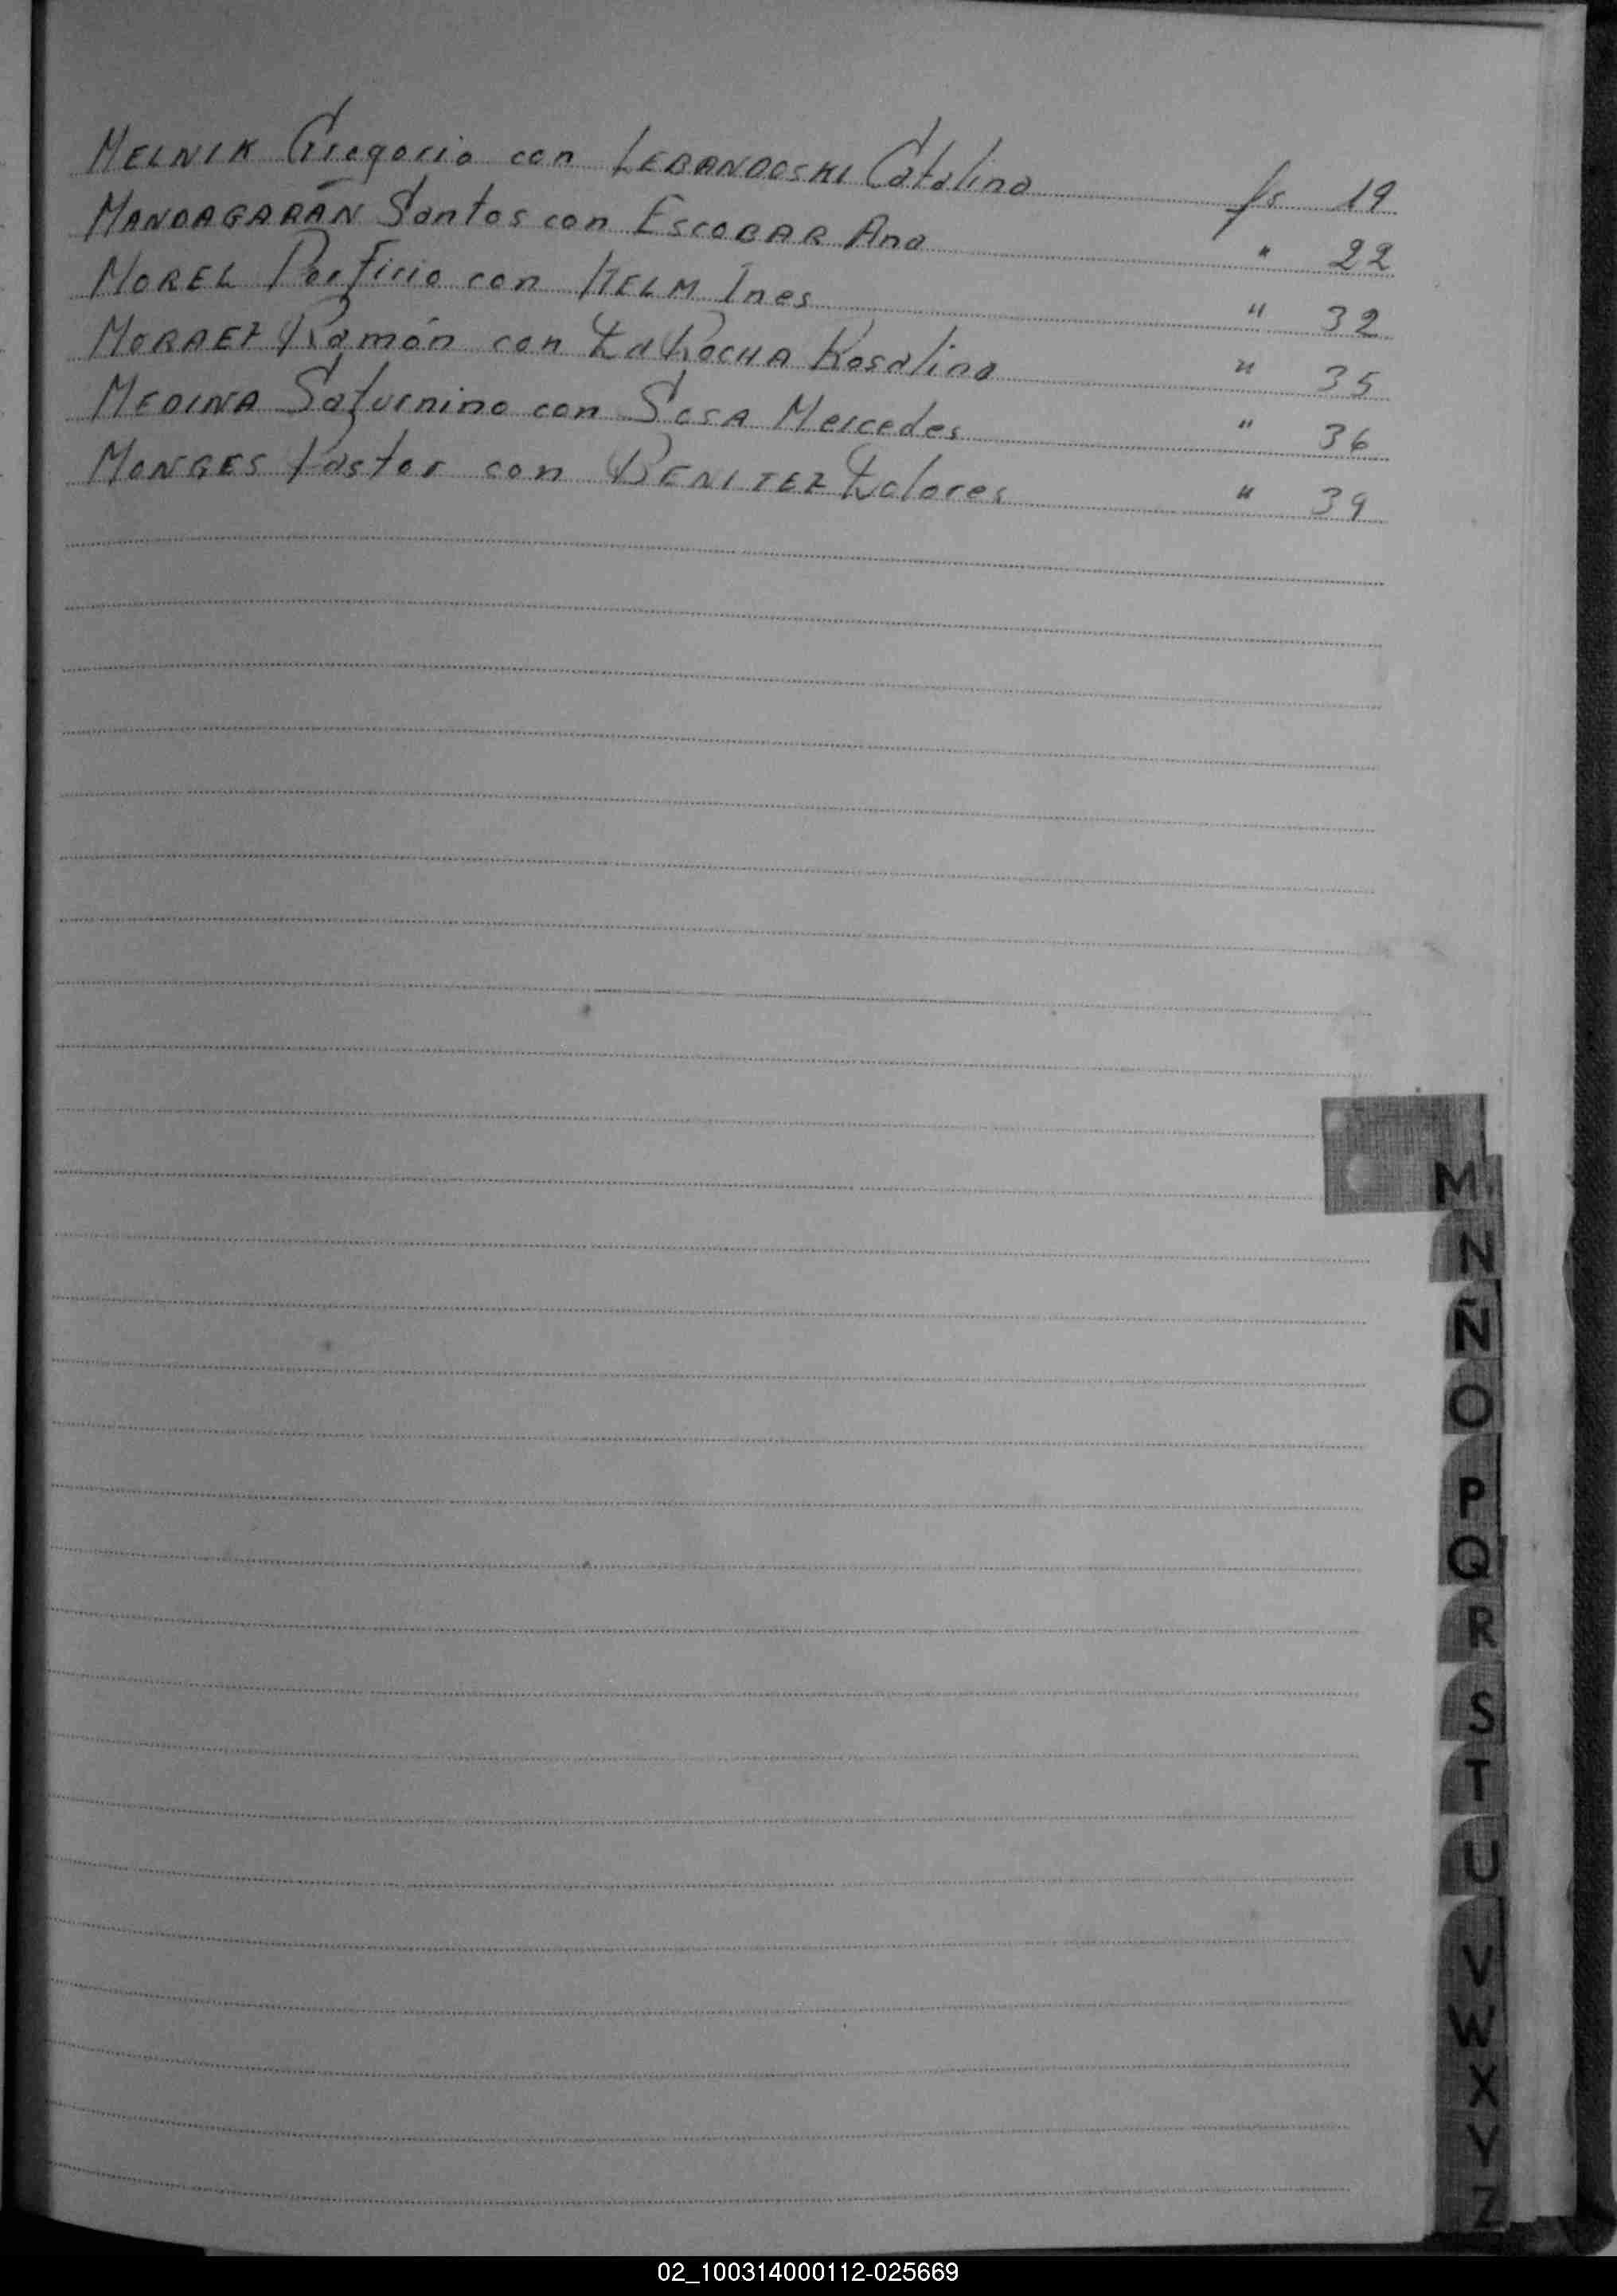 MELNIK Gregorio con LEBANDOSKI Catalina fs 19
MANDAGARÁN Santos con ESCOBAR Ana " 22
MOREL Porfirio con HELM Ines " 32
MORAEZ Ramón con Da ROCHA Rosalina " 35
MEDINA Saturnino con SOSA Mercedes " 36
MONGES Pastor con BENITEZ Dolores " 39
M
N
Ñ
O
P
Q
R
S
T
U
V
W
X
Y
Z
02_100314000112-025669